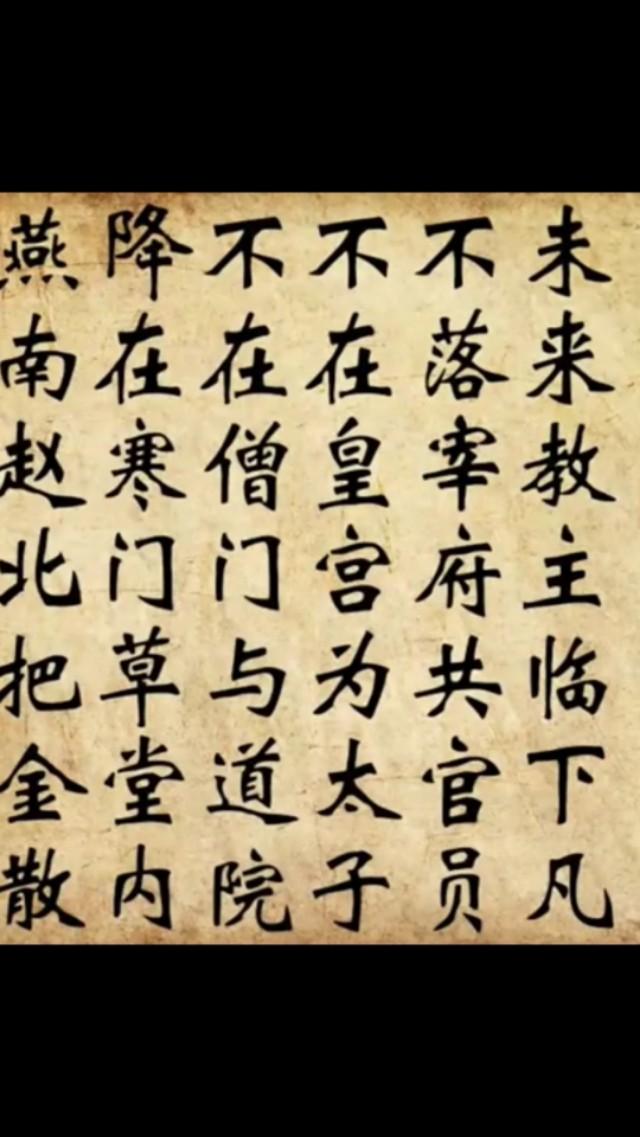 未来教主临下凡
不落宰府共官员
不在皇宫为太子
不在僧门与道院
降在寒门草堂内
燕南赵北把金散